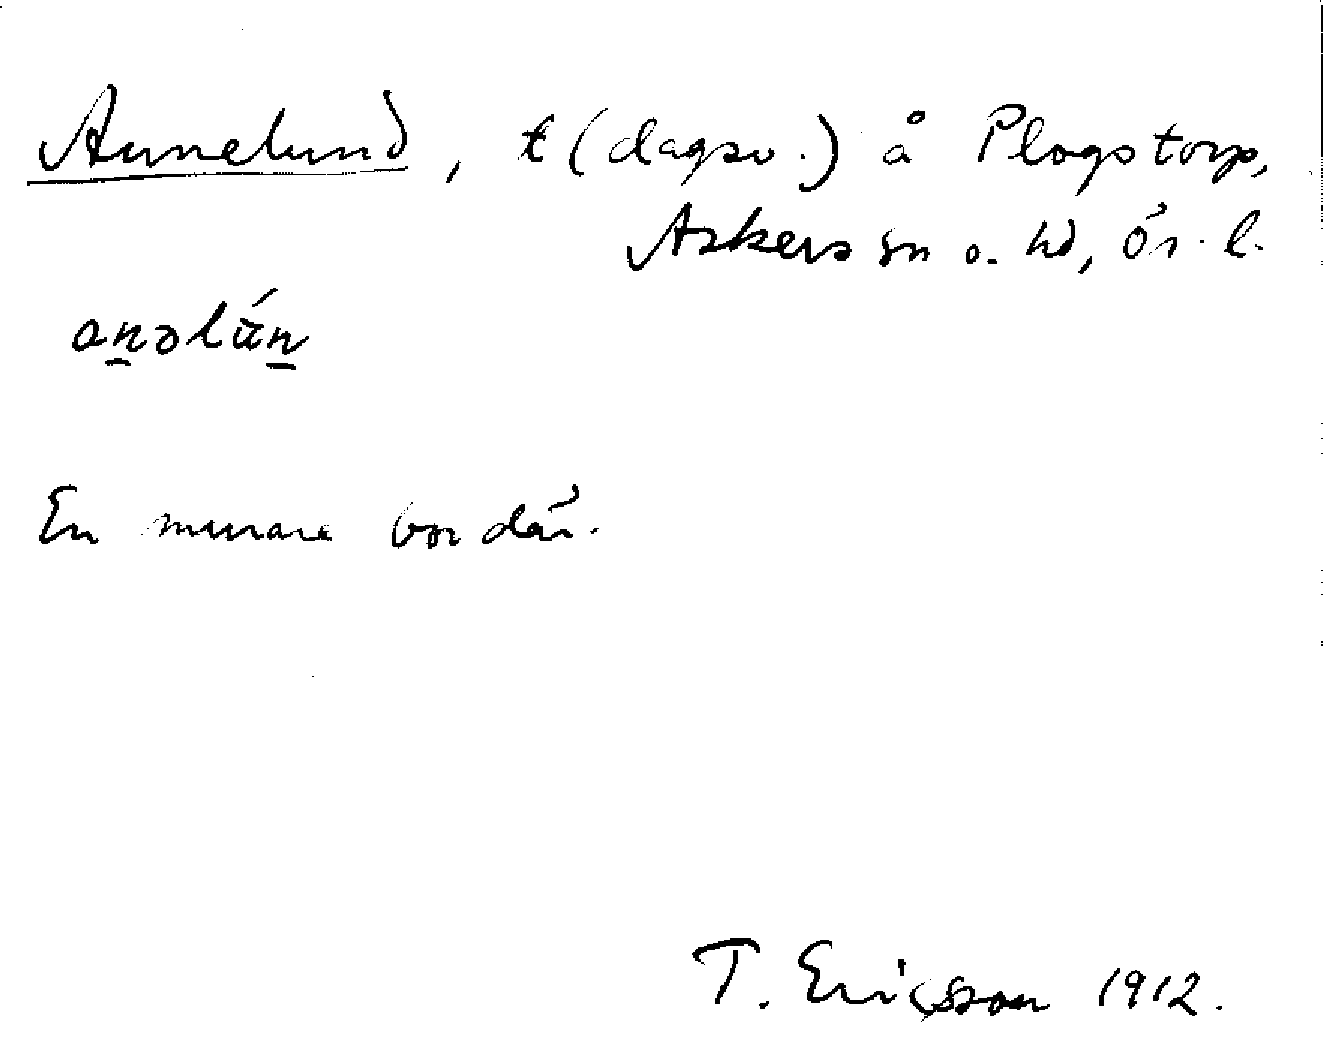 Annelund, t (dagsv.) å Plogstorp,
Askers sn o. hd, Ör. l.
En murare bor där.
T. Ericsson 1912.